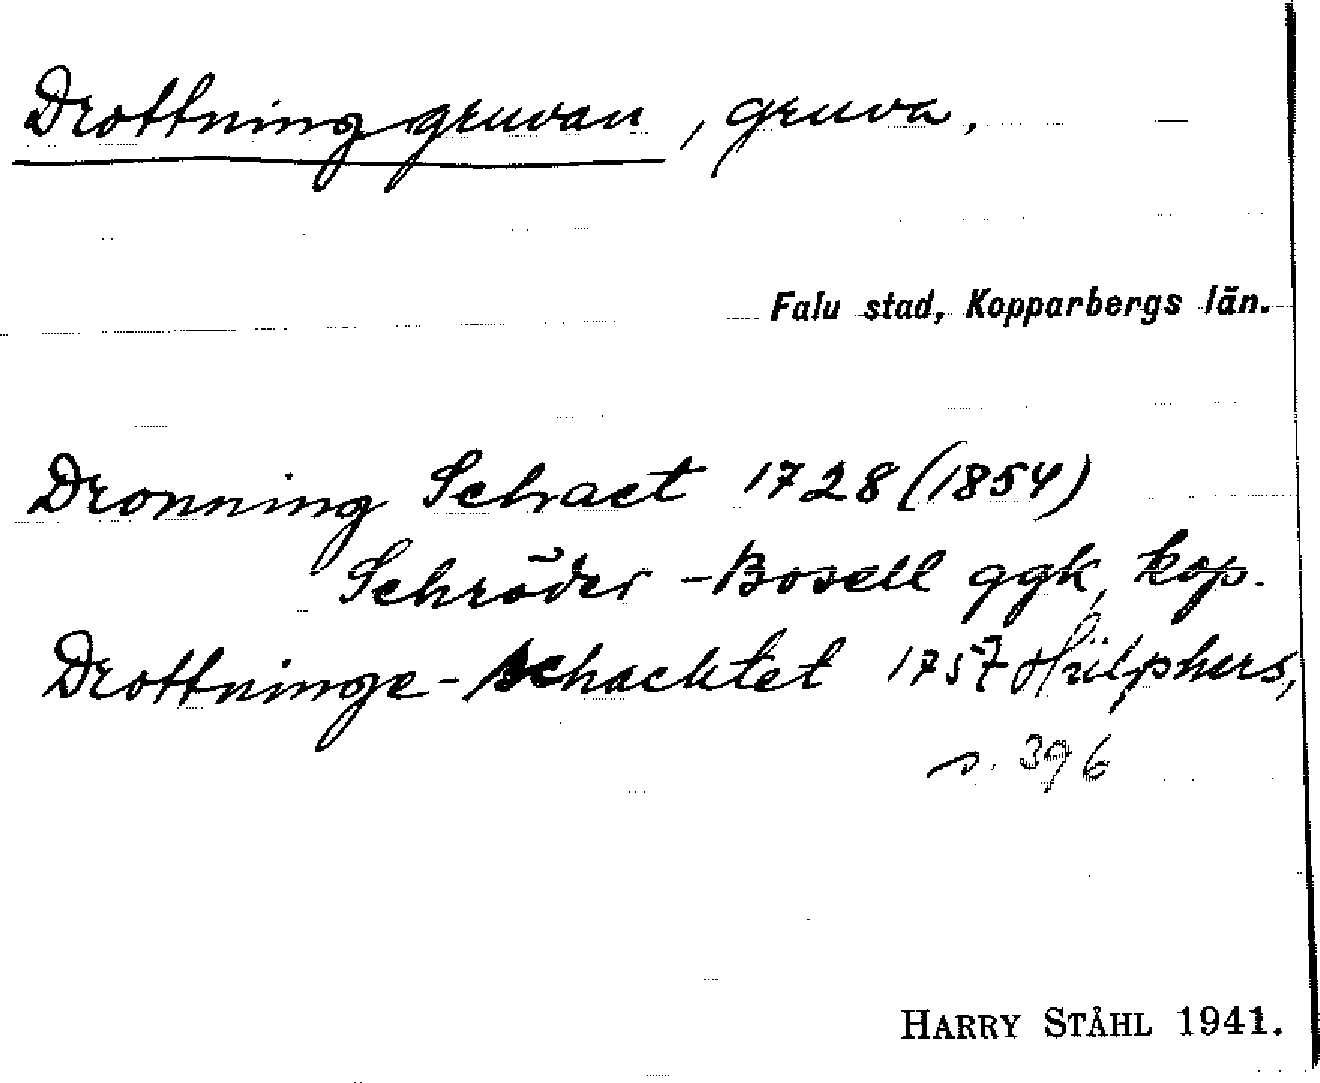 Drottninggruvan, gruva.
Falu stad, Kopparbergs län.
Dronning Schact 1728 (1854)
Schröder-Bosell ggk, kop.
Drottninge-schachtet 1757 Hülphers,
s. 396
HARRY STÅHL 1941.